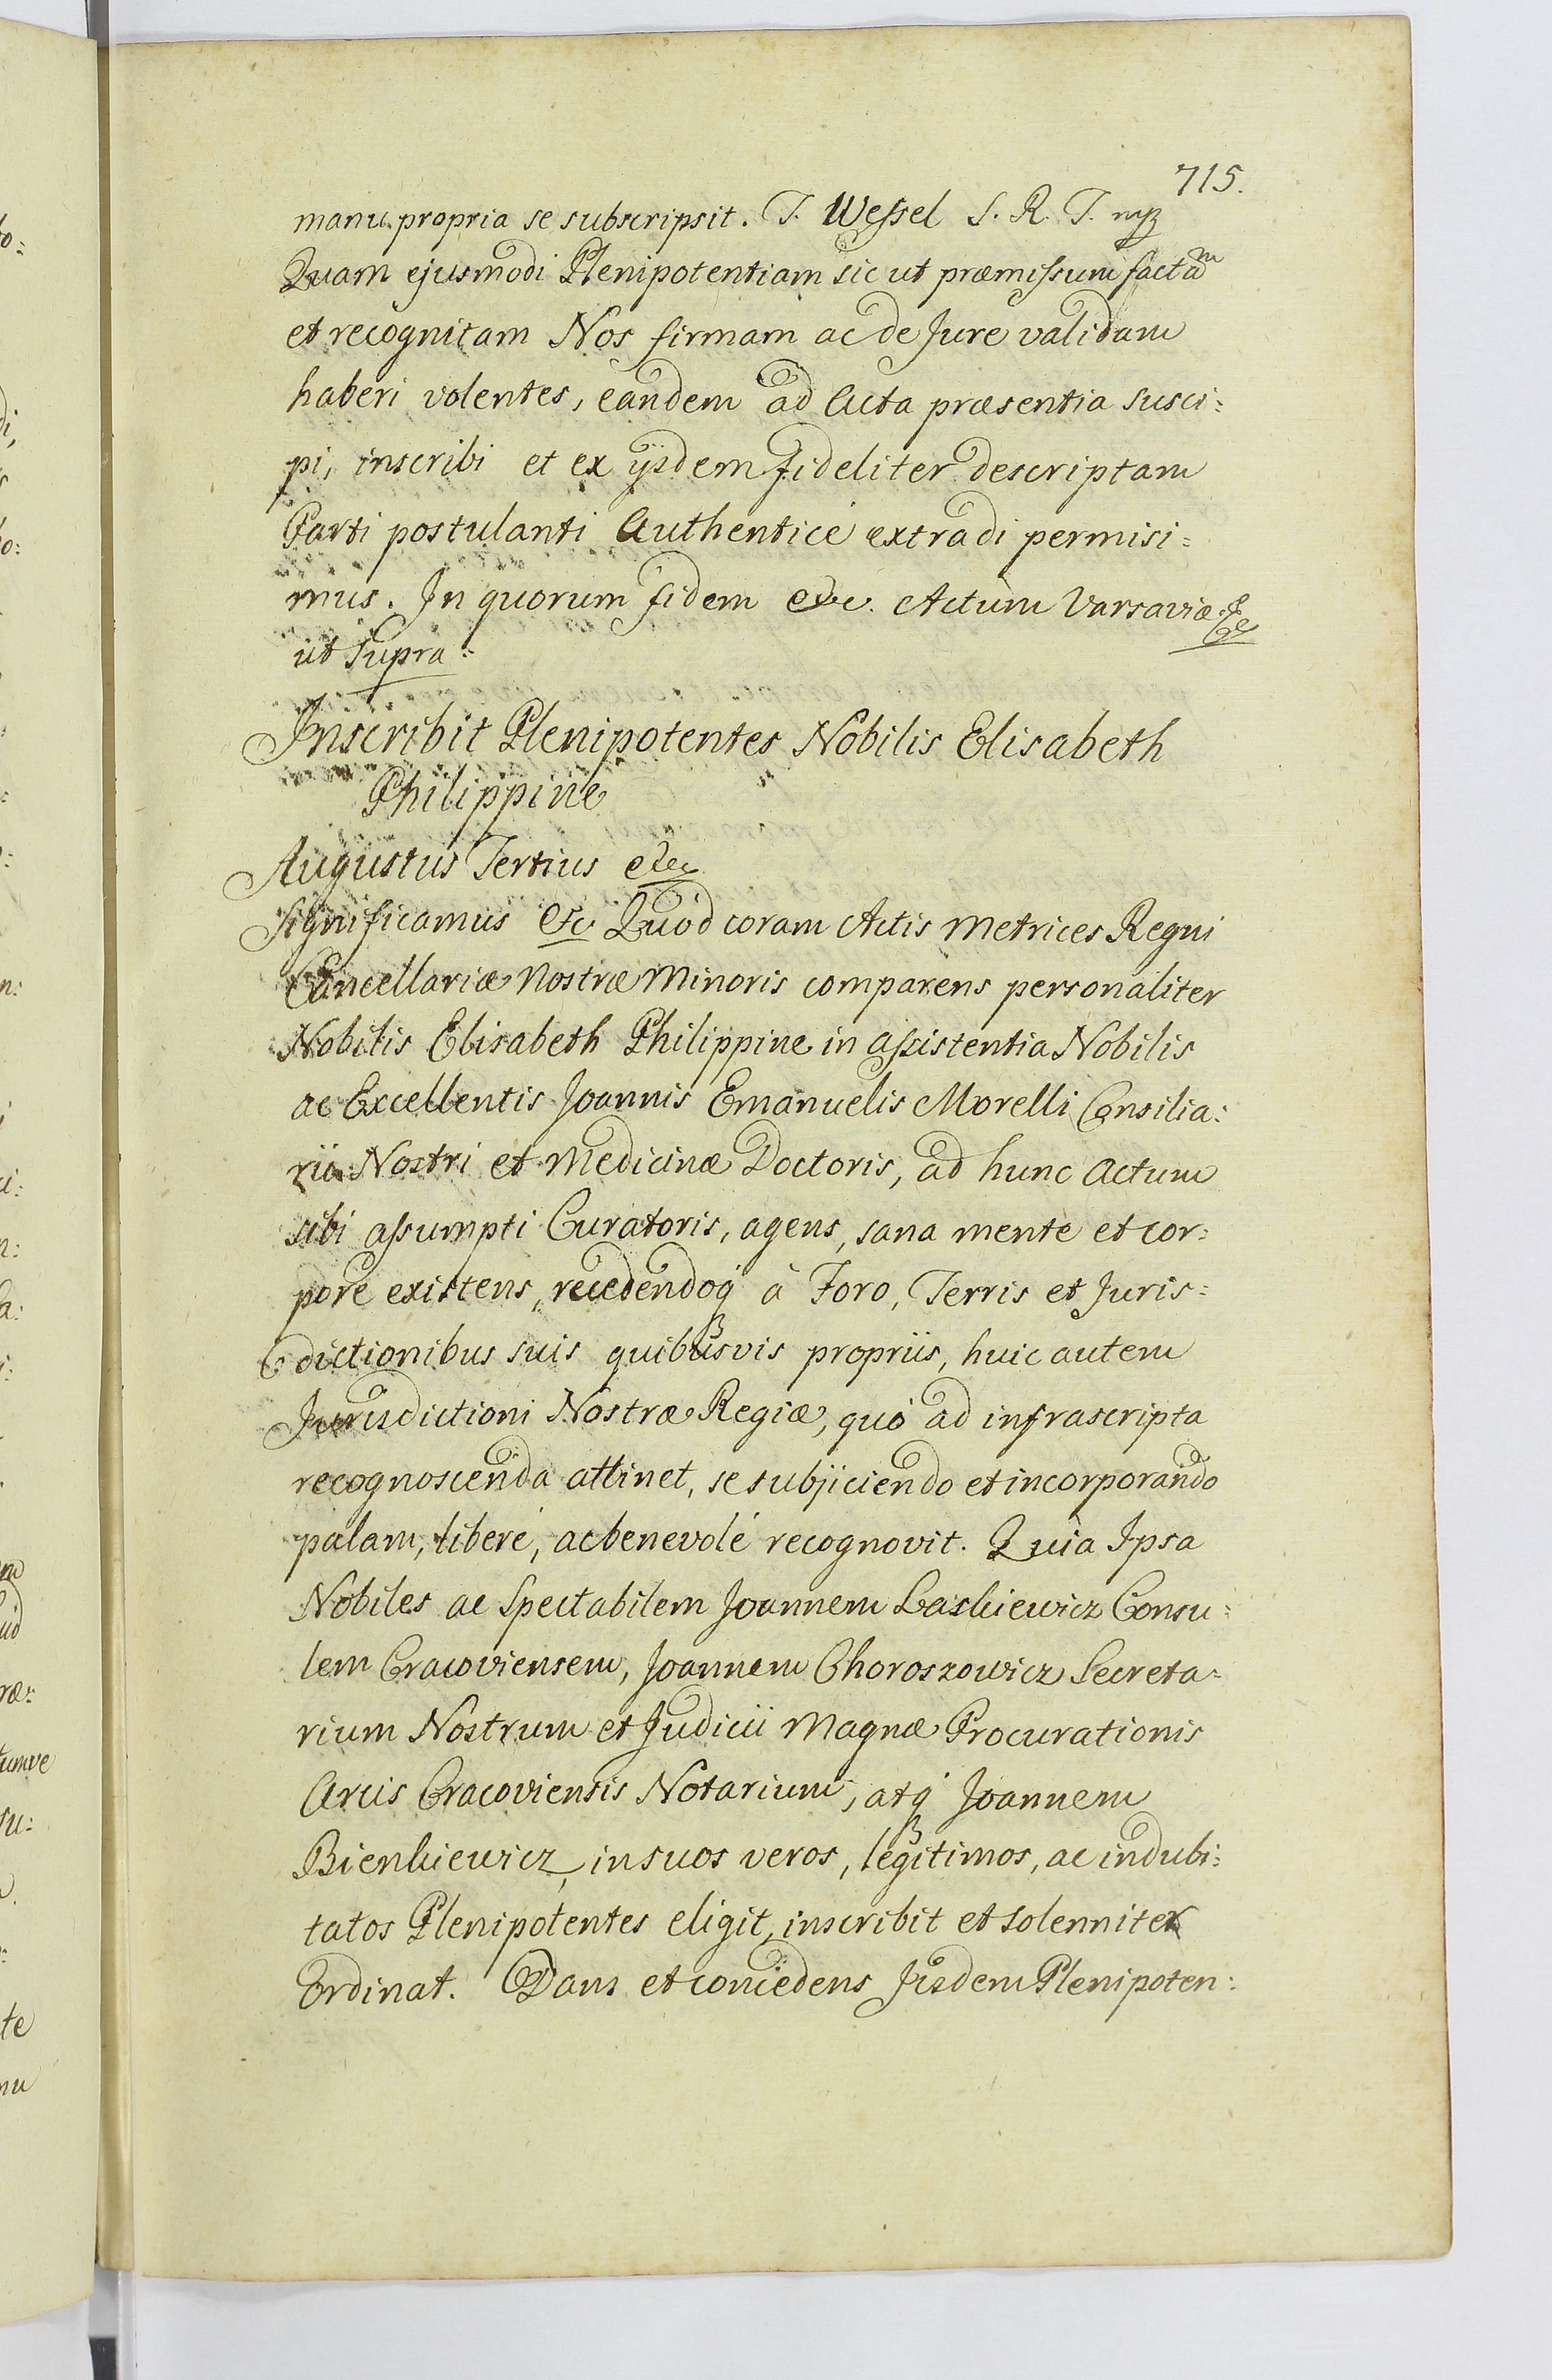 715.
manu propria se subscripsit. T. Wessel S. R. T. mp
Quam ejusmodi Plenipotentiam sic ut præmissum facta͠m
et recognitam Nos firmam ac de Jure validam
haberi volentes, eandem ad Acta præsentia susci:
pi, inscribi et ex ijsdem fideliter descriptam
Parti postulanti Authenticé extradi permisi:
mus. In quorum fidem etc. Actum Varsaviæ etc
ut Supra:
Inscribit Plenipotentes Nobilis Elisabeth
Philippine
Augustus Tertius etc
Significamus etc Quod coram Actis Metrices Regni
Cancellariæ Nostræ Minoris comparens personaliter
Nobilis Elisabeth Philippine in assistentia Nobilis
ac Excellentis Joannis Emanuelis Morelli Consilia:
rii Nostri et Medicinæ Doctoris, ad hunc Actum
sibi assumpti Curatoris, agens, sana mente et cor:
pore existens, recedendoq à Foro, Terris et Juris:
dictionibus suis quibusvis propriis, huic autem
Jurisdictioni Nostræ Regiæ, quó ad infrascripta
recognoscenda attinet, se subjiciendo et incorporando
palam, liberé, ac benevolé recognovit. Quia Ipsa
Nobiles ac Spectabilem Joannem Laskiewicz Consu:
lem Cracoviensem, Joannem Choroszowicz Secreta:
rium Nostrum et Judicii Magnæ Procurationis
Arcis Cracoviensis Notarium, atq Joannem
Bienkiewicz, in suos veros, legitimos, ac indubi:
tatos Plenipotentes eligit, inscribit et solenniter
Ordinat. Dans et concedens Iisdem Plenipoten: